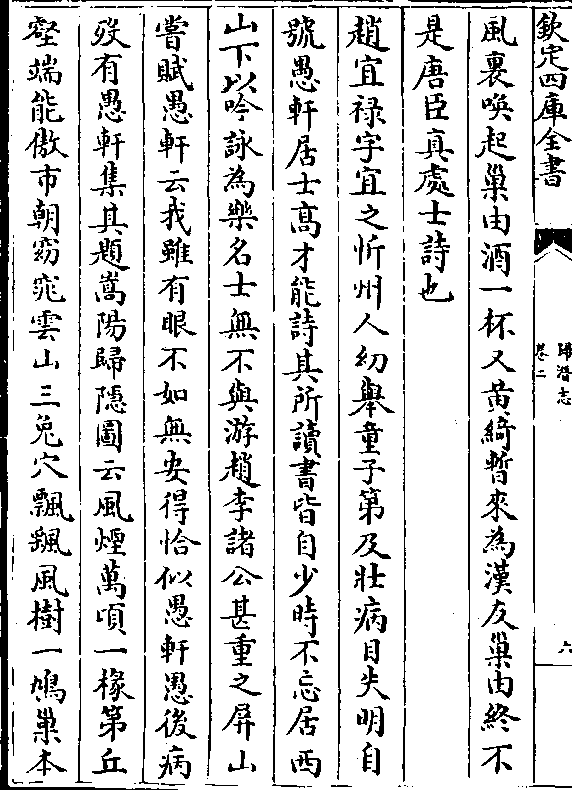 欽定四庫全書
歸潛志
卷二
六
風裏喚起巢由酒一杯又黃綺暫來為漢友巢由終不
是唐臣真處士詩也
趙宜禄字宜之忻州人幼舉童子第及壯病目失明自
號愚軒居士髙才能詩其所讀書皆自少時不忘居西
山下以吟詠為樂名士無不與游趙李諸公甚重之屏山
嘗賦愚軒云我雖有眼不如無安得恰似愚軒愚後病
殁有愚軒集其題嵩陽歸隱圖云風煙萬頃一椽第丘
壑端能傲市朝窈窕雲山三兔穴飄飖風樹一鳩巢本